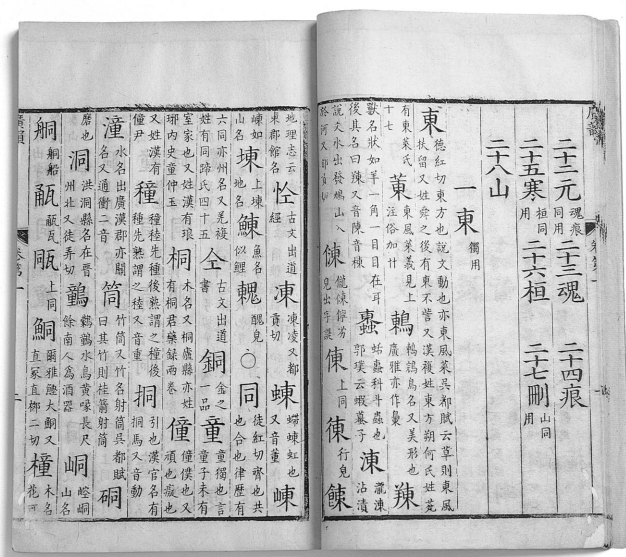 二十二元 魂痕同用 二十三魂 二十四痕
二十五寒 桓同用 二十六桓 二十七刪 山同用
二十八山
一東 獨用
東 德紅切東方也說文動也亦東風菜吳都賦云草則東風扶留又姓舜之後有東不訾又漢複姓東方朔何氏姓苑
有東萊氏十七 菄 東風菜義見上注俗加艹 鶇 鶇鵍鳥名又美形也廣雅亦作 䍶
獸名狀如羊一角一目目在耳後其名曰䍶又音陳音棟 蛞科斗蟲也郭璞云蝦蟇子 涷 瀧涷沾漬
說文水出發鳩山入於河又都貢切 倲 儱倲儜劣見字諟 上同 徚 行皃
地理志云東郡館名 古文出道經 凍 凍凌又都貢切 蝀 螮蝀虹也又音董 崠
崠如山名 埬 上埬地名 鯟 魚名似鯉 醜皃 ○ 同 徒紅切齊也共也合也律歷有
六同亦州名又羌複姓有同蹄氏四十五 仝 古文出道書 銅 金之一品 童 童獨也言童子未有
室家也又姓漢有琅琊內史童仲玉 桐 木名又桐廬縣亦姓有桐君藥錄兩卷 僮 僮僕也又頑也癡也
又姓漢有僮尹 穜 穜稑先種後熟謂之穜後種先熟謂之稑又音重 挏 引也漢官名有挏馬又音動
潼 水名出廣漢郡亦關名又通衝二音 筒 竹筒又竹名射筒吳都賦曰其竹則桂箭射筒 硐
磨也 洞 洪洞縣名在晉州北又徒弄切 水鳥黃喙長尺餘南人為酒器 峒 崆峒山名
舸 舸船 㼧 㼧瓦 上同 鮦 爾雅 大鮦又直冢直柳二切 橦 木名花可